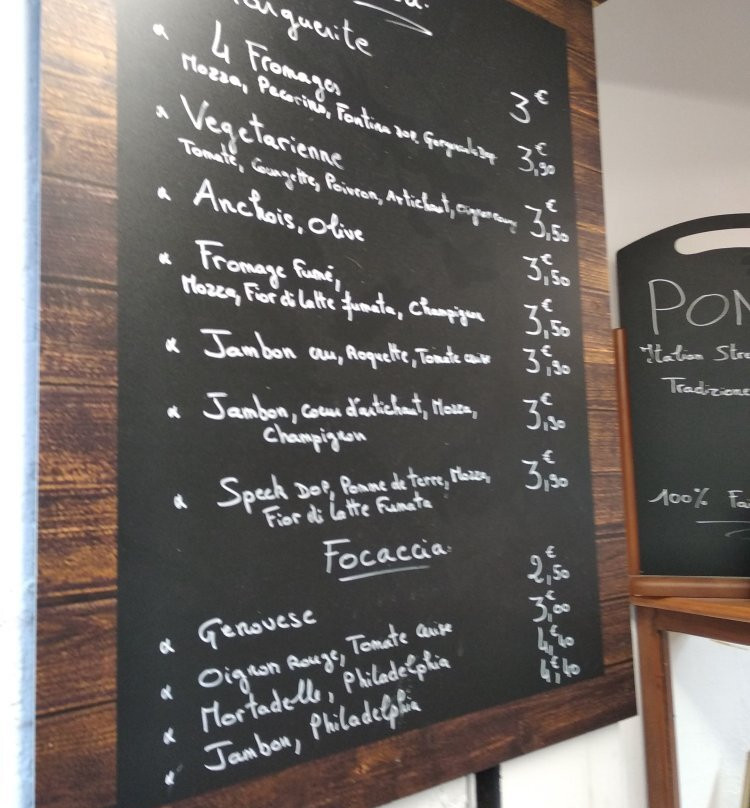 Marguerite
3€
4 Fromages
Mozza, Pecorino, Fontina DOP, Gorgonzola DOP
3,90€
Vegetarienne
Tomate, Courgette, Poivron, Artichaut, Oignon
3,50€
Anchois, Olive
3,50€
Fromage fumé,
Mozza, Fior di Latte fumata, Champignon
3,50€
Jambon cru, Roquette, Tomate cuite
3,90€
Jambon, coeur d'artichaut, Mozza,
Champignon
3,90€
Speck DOP, Pomme de terre, Mozza,
Fior di Latte Fumata
3,90€
Focaccia
Genovese
2,50€
Oignon Rouge, Tomate cuite
3,00€
Mortadelle, Philadelphia
4,40€
Jambon, Philadelphia
4,40€
Italian
Tradizione
100%